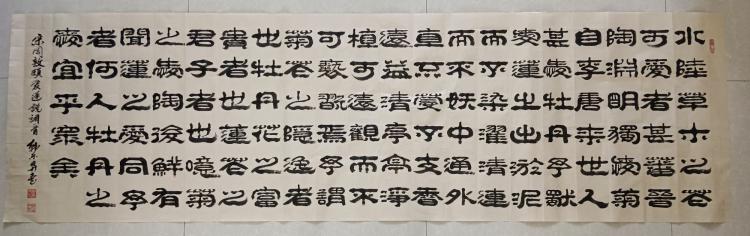 水陸草木之花
可愛者甚蕃晉
陶淵明獨愛菊
自李唐來世人
甚愛牡丹予獨
愛蓮之出淤泥
而不染濯清漣
而不妖中通外
直不蔓不支香
遠益清亭亭淨
植可遠觀而不
可褻翫焉予謂
菊花之隱逸者
也牡丹花之富
貴者也蓮花之
君子者也噫菊
之愛陶後鮮有
聞蓮之愛同予
者何人牡丹之
愛宜乎眾矣
宋周敦頤愛蓮說